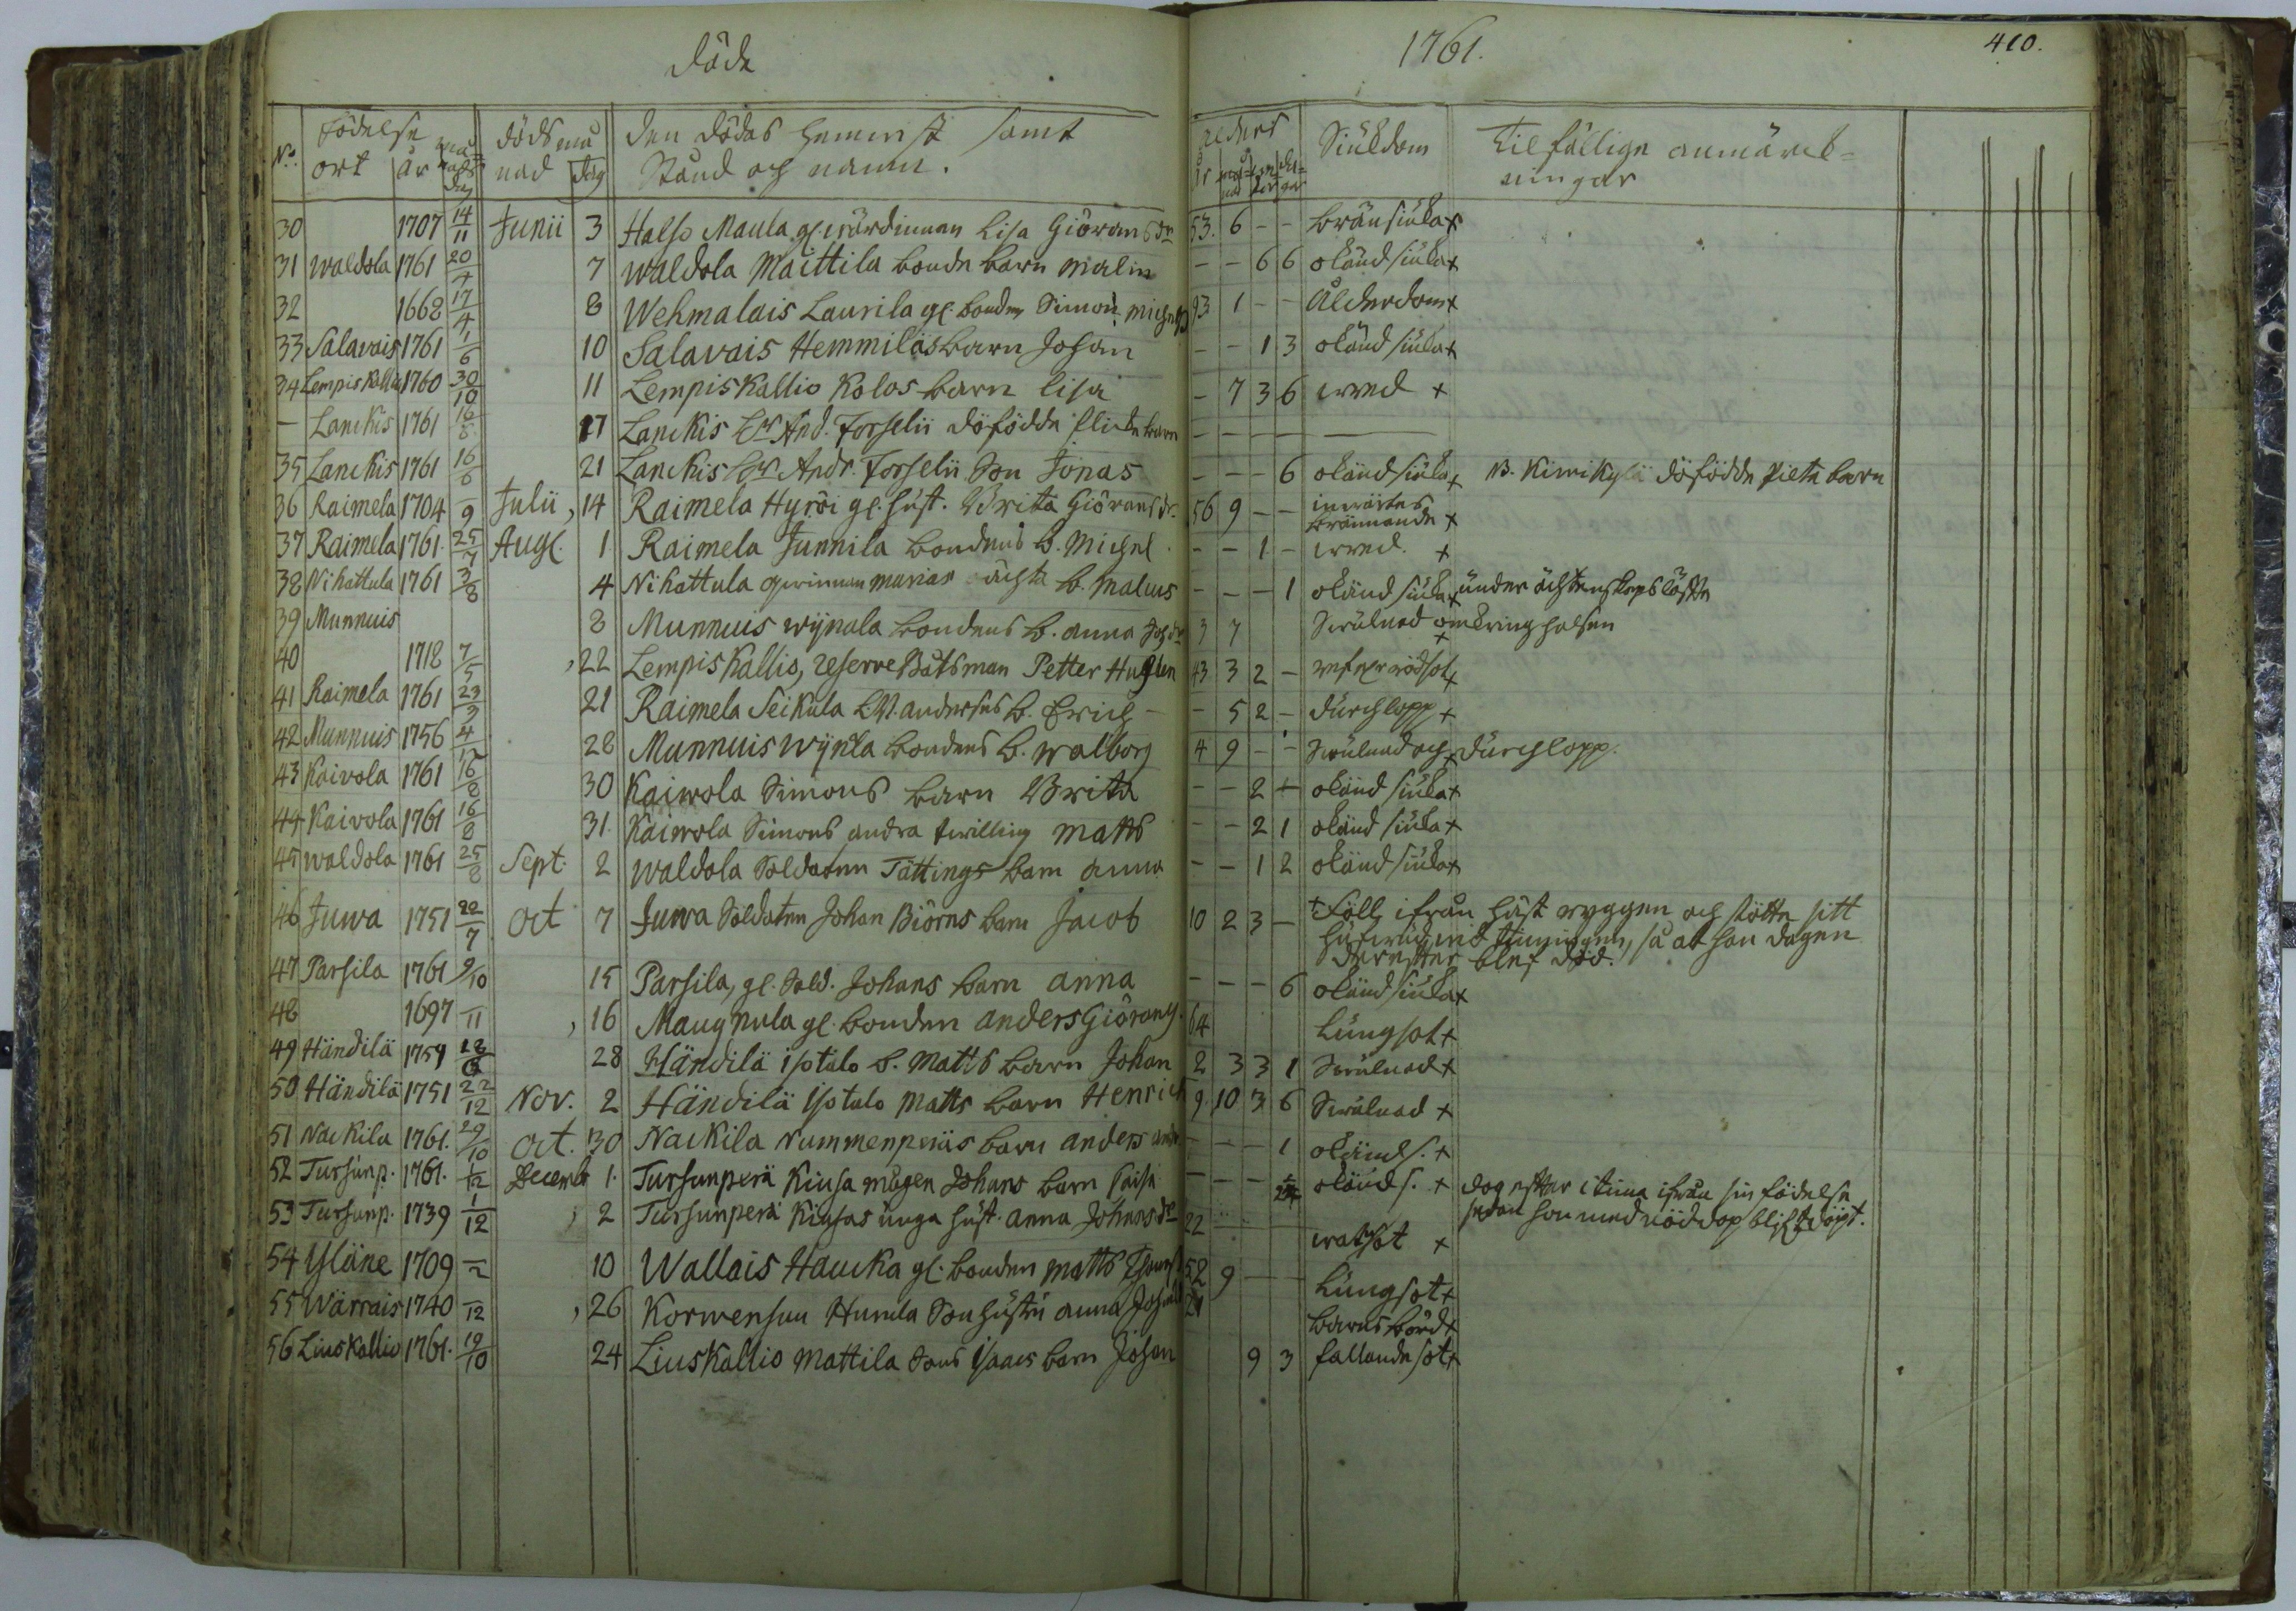 döde
1761.
410.
No. Födelse ort år månads dag döds månad dag den dödas hemvist samt Stånd och namn. ålders år månar vekor dagar Siukdom Tilfällige anmärckningar
30 1707 14/11 Junii 3 Halso Maula gl. wärdinnan Lisa Giörans dr 53. 6 - - brännsiuka +
31 waldola 1761 20/4 7 waldola Maittila bonde barn malin - - 6 6 okänd siuka +
32 1668 17/4 8 Wehmalais Laurila gl. bonden Simon Michels 93 1 - - Ålderdom +
33 Salavais 1761 1/6 10 Salavais Hemmiläs barn Johan - - 1 3 okänd siuka +
34 Lempis Kallio 1760 30/10 11 Lempiskallio Kolos barn Lisa - 7 3 6 wred +
- Lanckis 1761 16/ 17 Lanckis And. Forselii döfödde flicke barn - - - -
35 Lanckis 1761 16/6 21 Lanckis Andr. Forselii Son Jonas - - - 6 okänd siuka + N. Kimikylä döfödde barn
36 Raimela 1704 -/9 Julii, 14 Raimela Hyröi gl. hust. Brita Giörans dr 56 9 - - inwärtes brännande +
37 Raimela 1761. 25/7 Aug. 1 Raimela Junnila bondens b. Michel - - 1 - wred. +
38 Nihattula 1761 3/8 4 Nihattula qwinnan marias oächta b. malins - - - 1 okänd siuka + under ächtenskaps löffte
39 Munnuis 8 Munnuis wijnala bondens b. anna Joh dr 3 7 Swulnad omkring halsen +
40 1718 7/5 , 22 Lempis Kallio, reserve Båtsman Petter 43 3 2 - rödsot +
41 Raimela 1761 23/ 21 Raimela Seikula anderses b. Erich - - 5 2 - durchlopp +
42 Munnuis 1756 4/ 28 Munnuis wijnla bondens b. walborg 4 9 - - Swulnad och durchlopp. +
43 Kaivola 1761 16/8 30 Kaiwola Simons barn Brita - - 2 - okänd siuka +
44 Kaivola 1761 16/8 31. Kaiwola Simons andra twilling matts - - 2 1 okänd siuka +
45 waldola 1761 25/8 Sept. 2 waldola Soldaten Tättings barn anna - - 1 2 okänd siuka +
46 Juwa 1751 20/7 Oct 7 Juwa Soldaten Johan Biörns barn Jacob 10 2 3 - + Föll ifrån häst ryggen och stötte sitt
hufwud wid tinningen, så at han dagen
derefter blef död.
47 Parsila 1761 9/10 15 Parsila, gl. Sold. Johans barn anna - - - 6 okänd siuka +
48 1697 -/11 , 16 Maugnula gl. bonden anders Giörans. 64 Lungsot +
49 Händilä 1759 28 Händilä isotalo b. Matts barn Johan 2 3 3 1 Swulnad +
50 Händilä 1751 22/12 Nov. 2 Händilä isotalo Matts barn Henrich 9 10 3 6 Swulnad +
51 Nackila 1761. 29/10 Oct. 30 Nackila Nummenperäs barn anders - - - 1 okänd s. +
52 Tursunp. 1761. 1/12 Decemb 1. Tursunperä Kiusa mågen Johans barn - - - okänd s. + dog efter 1 tima ifrån sin födelse
sedan hon med nöddop blifwit döpt.
53 Tursunp. 1739 1/12 , 2 Tursunperä Kiusas unga hust. anna Johans dr 22 watsot +
54 Yläne 1709 -/2 10 Wallais Haucka gl. bonden matts 52 9 - - Lungsot +
55 Wärrais 1740 -/12 , 26 Korwensuu Hunila Sonhustru anna 21 barnsbörd +
56 Liuskallio 1761. 19/10 24 Liuskallio Mattila Sons Isaacs barn Johan 9 3 fallande sot +